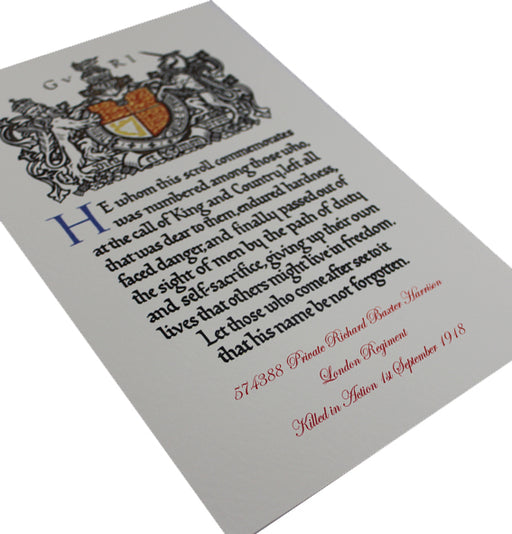 G V R I
HE whom this scroll commemorates
was numbered among those who,
at the call of King and Country, left all
that was dear to them, endured hardness,
faced danger, and finally passed out of
the sight of men by the path of duty
and self-sacrifice, giving up their own
lives that others might live in freedom.
Let those who come after see to it
that his name be not forgotten.
574388 Private Richard Baxter Harrison
London Regiment
Killed in Action 1st September 1918